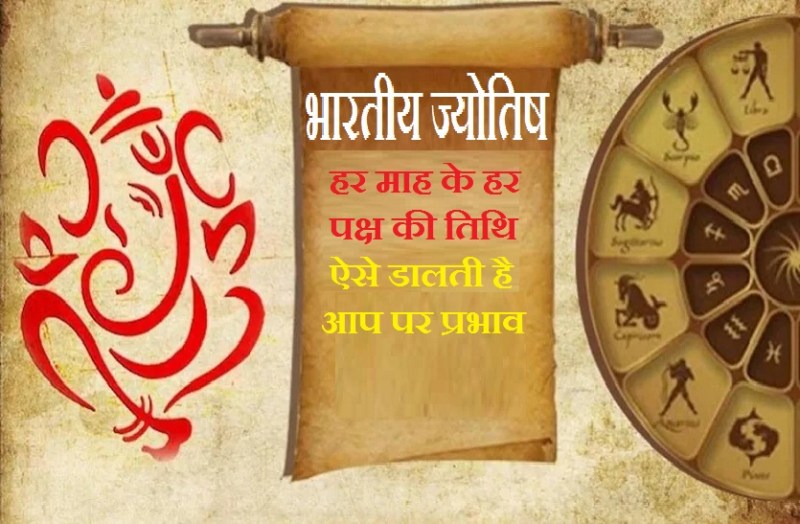 भारतीय ज्योतिष
हर माह के हर
पक्ष की तिथि
ऐसे डालती है
आप पर प्रभाव
Libra
Scorpio
Sagittarius
Capricorn
Aquarius